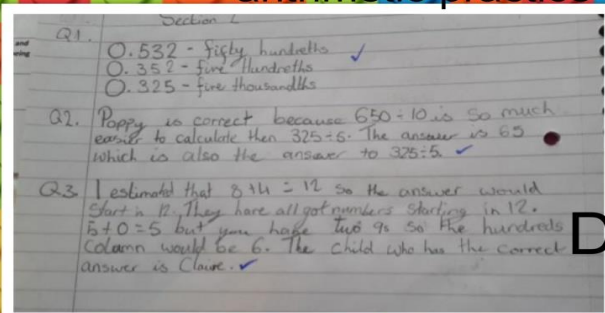 arithmetic practice
Section 2
and
Q1.
0.532 - fifty hundreths
0.352 - five Hundreths
0.325 - five thousandths
Q2. Poppy is correct because 650÷10 is so much
easier to calculate then 325÷5. The answer is 65
which is also the answer to 325÷5.
Q3. I estimated that 8+4=12 so the answer would
Start in 12. They have all got numbers starting in 12.
5+0=5 but you have two 9s so the hundreds
Column would be 6. The child who has the correct
answer is Claure.
D